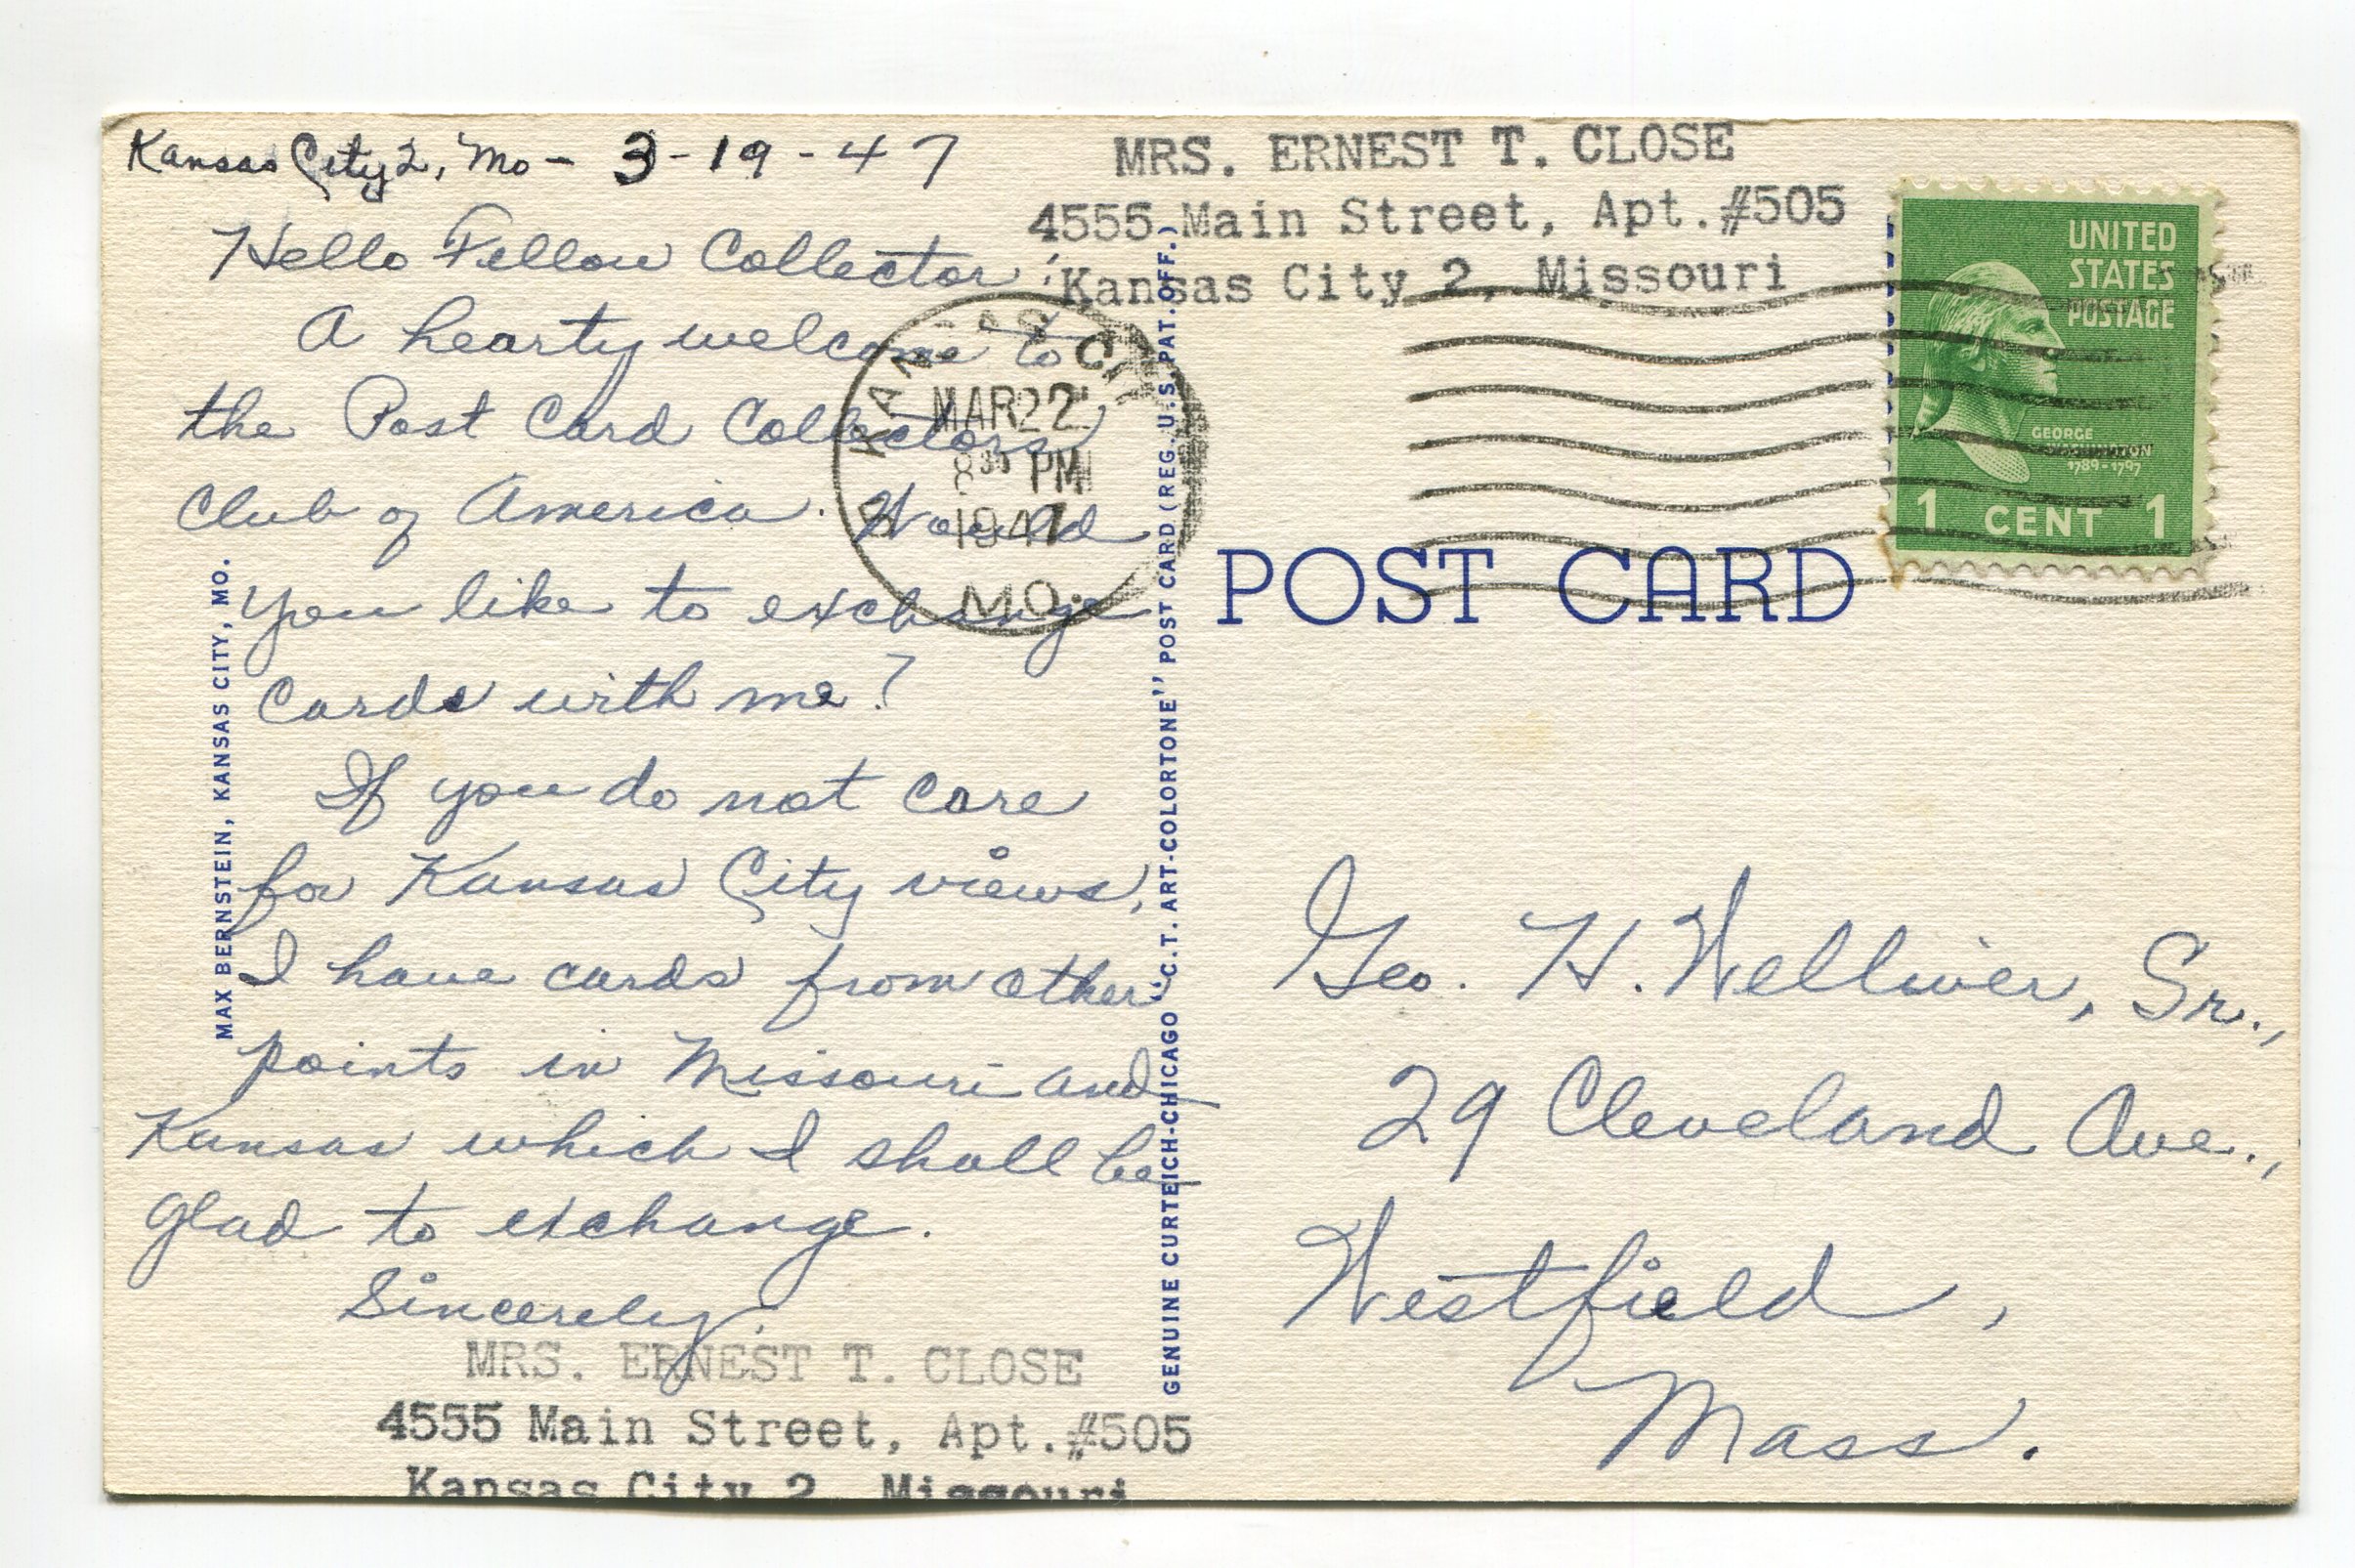 Kansas City 2, Mo - 3-19-47
Hello Fellow Collector:
A hearty welcome to
the Post Card Collectors
Club of America. Would
you like to exchange
cards with me?
If you do not care
for Kansas City views,
I have cards from other
points in Missouri and
Kansas which I shall be
glad to exchange.
Sincerely,
MRS. ERNEST T. CLOSE
4555 Main Street, Apt.#505
Kansas City 2, Missouri
MAX BERNSTEIN, KANSAS CITY, MO.
GENUINE CURTEICH-CHICAGO "C.T. ART-COLORTONE" POST CARD (REG. U.S. PAT. OFF.)
MRS. ERNEST T. CLOSE
4555 Main Street, Apt.#505
Kansas City 2, Missouri
KANSAS CITY
MAR 22
8 30 PM
1947
MO.
UNITED
STATES
POSTAGE
GEORGE
WASHINGTON
1789-1797
1 CENT 1
POST CARD
Geo. H. Welliver, Sr.,
29 Cleveland Ave.,
Westfield,
Mass.